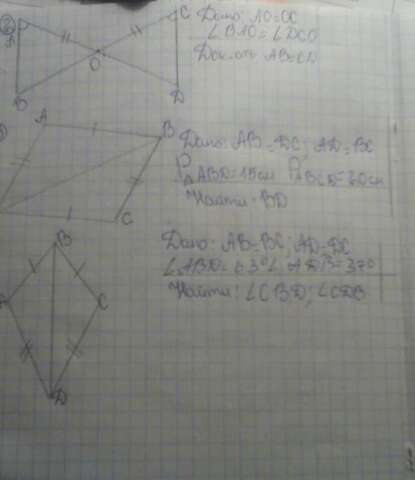 ② A C Дано: AO=OC
∠BAO=∠DCO
O Док-ать AB=CD
B D
A B Дано: AB=DC; AD=BC
P△ABD=15см PABCD=20см
Найти: BD
C
B Дано: AB=BC; AD=DC
∠ABD=63° ∠ADB=37°
A C Найти: ∠CBD; ∠CDB
D